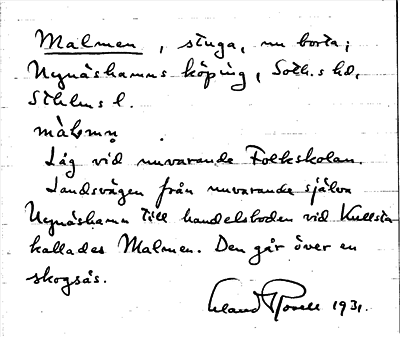 Malmen, stuga, nu borta;
Nynäshamns köping, Soth.s hd,
Sthlms l.
màlmn̥
Låg vid nuvarande Folkskolan.
Landsvägen från nuvarande själva
Nynäshamn till handelsboden vid Kullsta
kallades Malmen. Den går över en
skogsås.
Erland Rosell 1931.